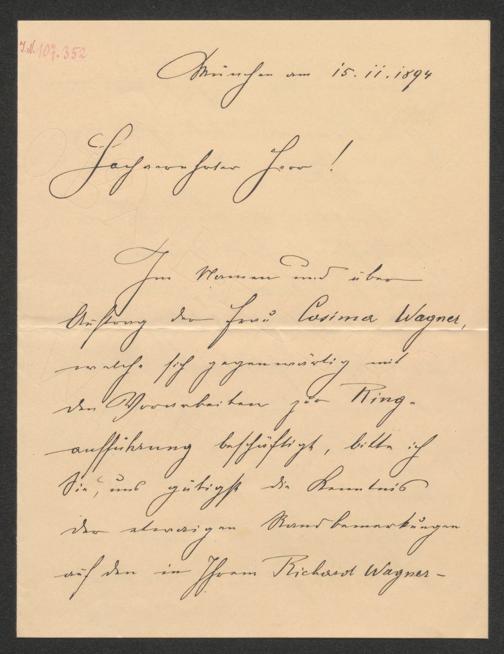 I.N. 107.352
München am 15.11.1894
Hochverehrter Herr!
Im Namen und über
Auftrag der Frau Cosima Wagner,
welche sich gegenwärtig mit
den Vorarbeiten zur Ring-
aufführung beschäftigt, bitte ich
Sie, uns gütigst die Kenntnis
der etwaigen Randbemerkungen
auf den in Ihrem Richard Wagner-